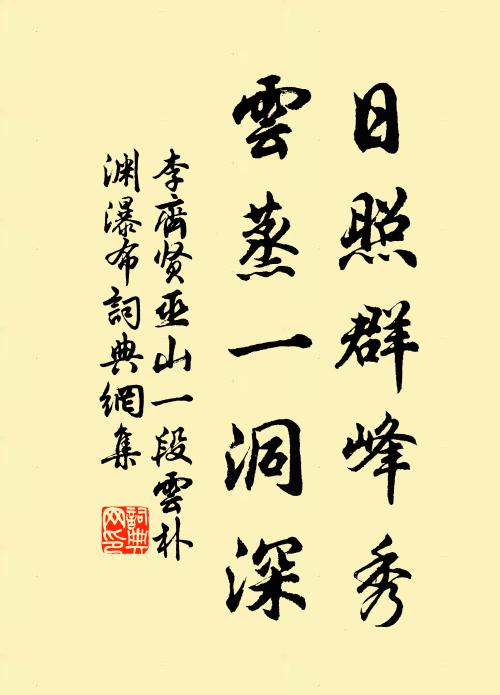 日照群峰秀
雲蒸一洞深
李齊贤巫山一段雲朴
渊瀑布詞典網集
詞典网印